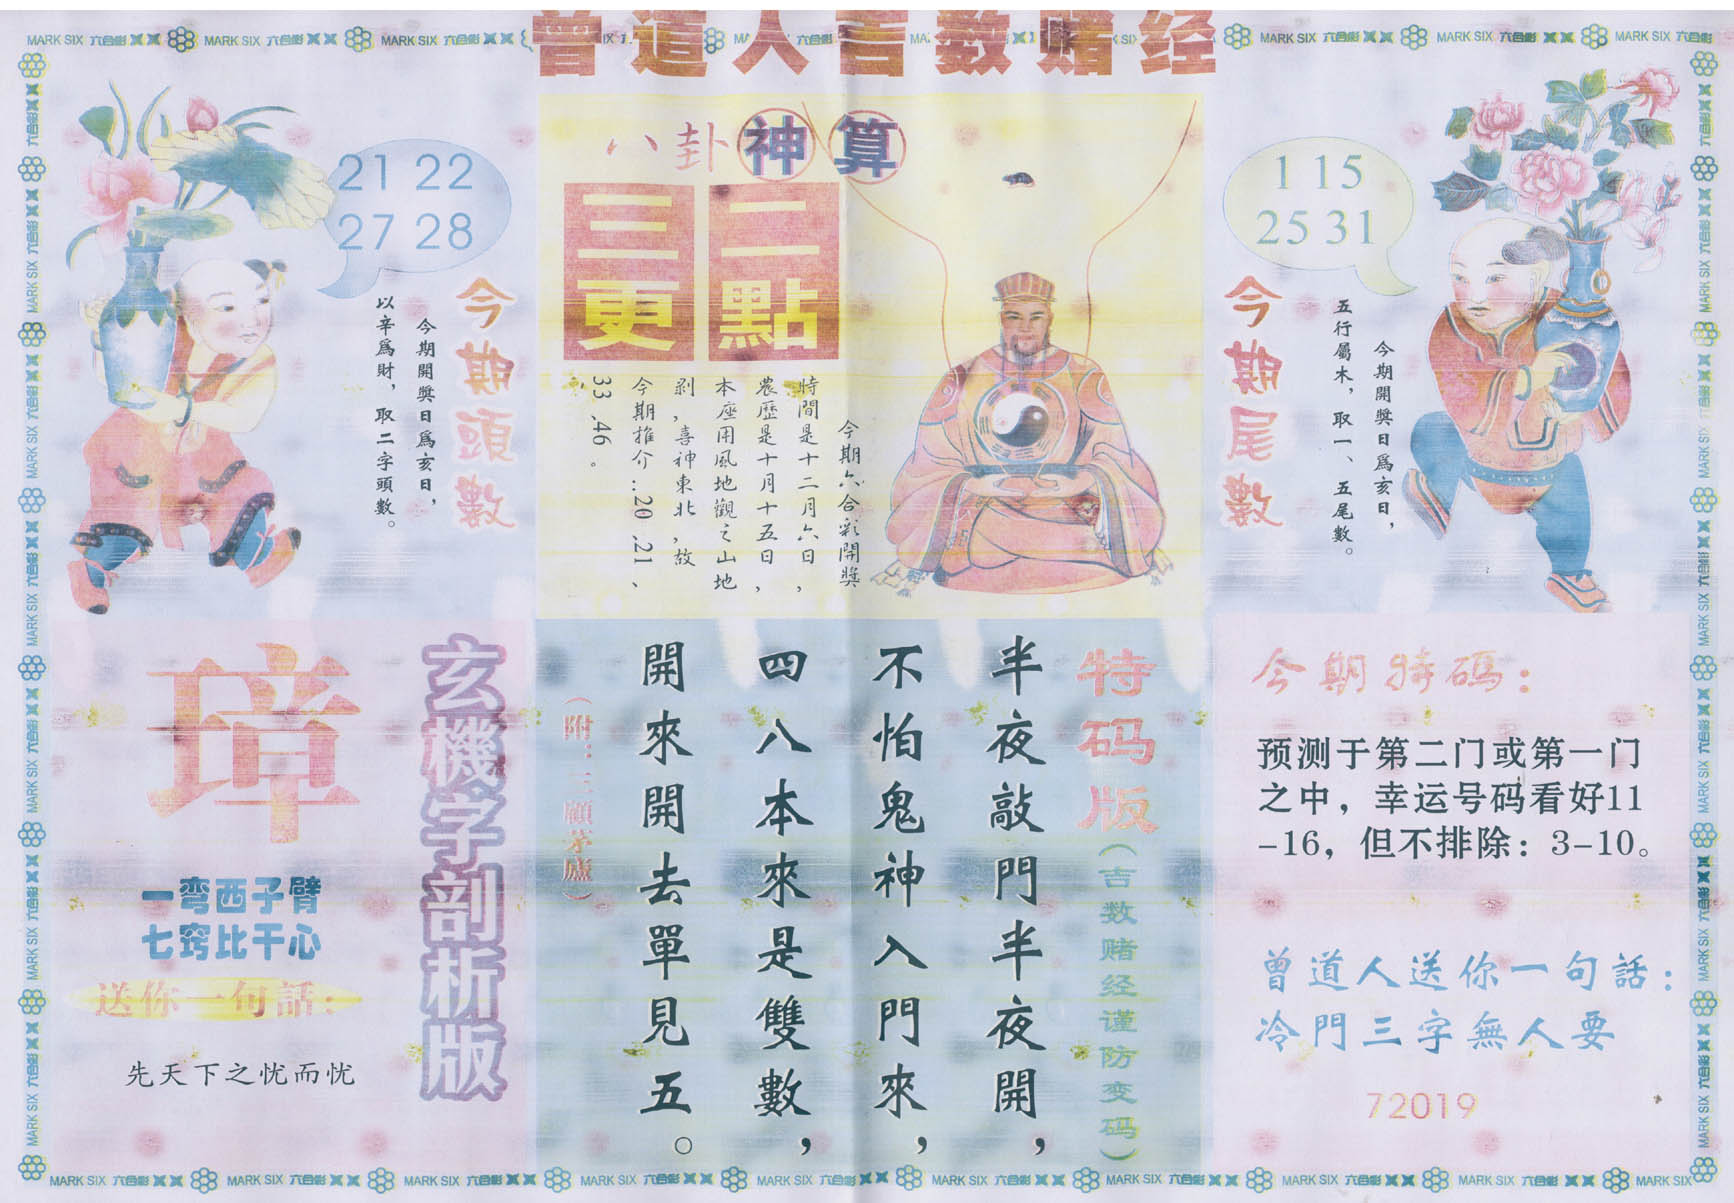 曾道人吉数赌经
MARK SIX 六合彩
八卦神算
二點
三更
今期六合彩開獎
時間是十二月六日，
農歷是十月十五日，
本座用風地觀之山地
剥，喜神東北，故
今期推介：20、21、
33、46。
21 22
27 28
今期頭數
今期開獎日爲亥日，
以辛爲財，取二字頭數。
1 15
25 31
今期尾數
今期開獎日爲亥日，
五行屬木，取一、五尾數。
玄機字剖析版
璋
一弯西子臂
七窍比干心
送你一句話：
先天下之忧而忧
特码版
（吉数赌经谨防变码）
半夜敲門半夜開，
不怕鬼神入門來，
四八本來是雙數，
開來開去單見五。
（附：三顧茅廬）
今期特碼：
预测于第二门或第一门
之中，幸运号码看好11
-16，但不排除：3-10。
曾道人送你一句話：
冷門三字無人要
72019